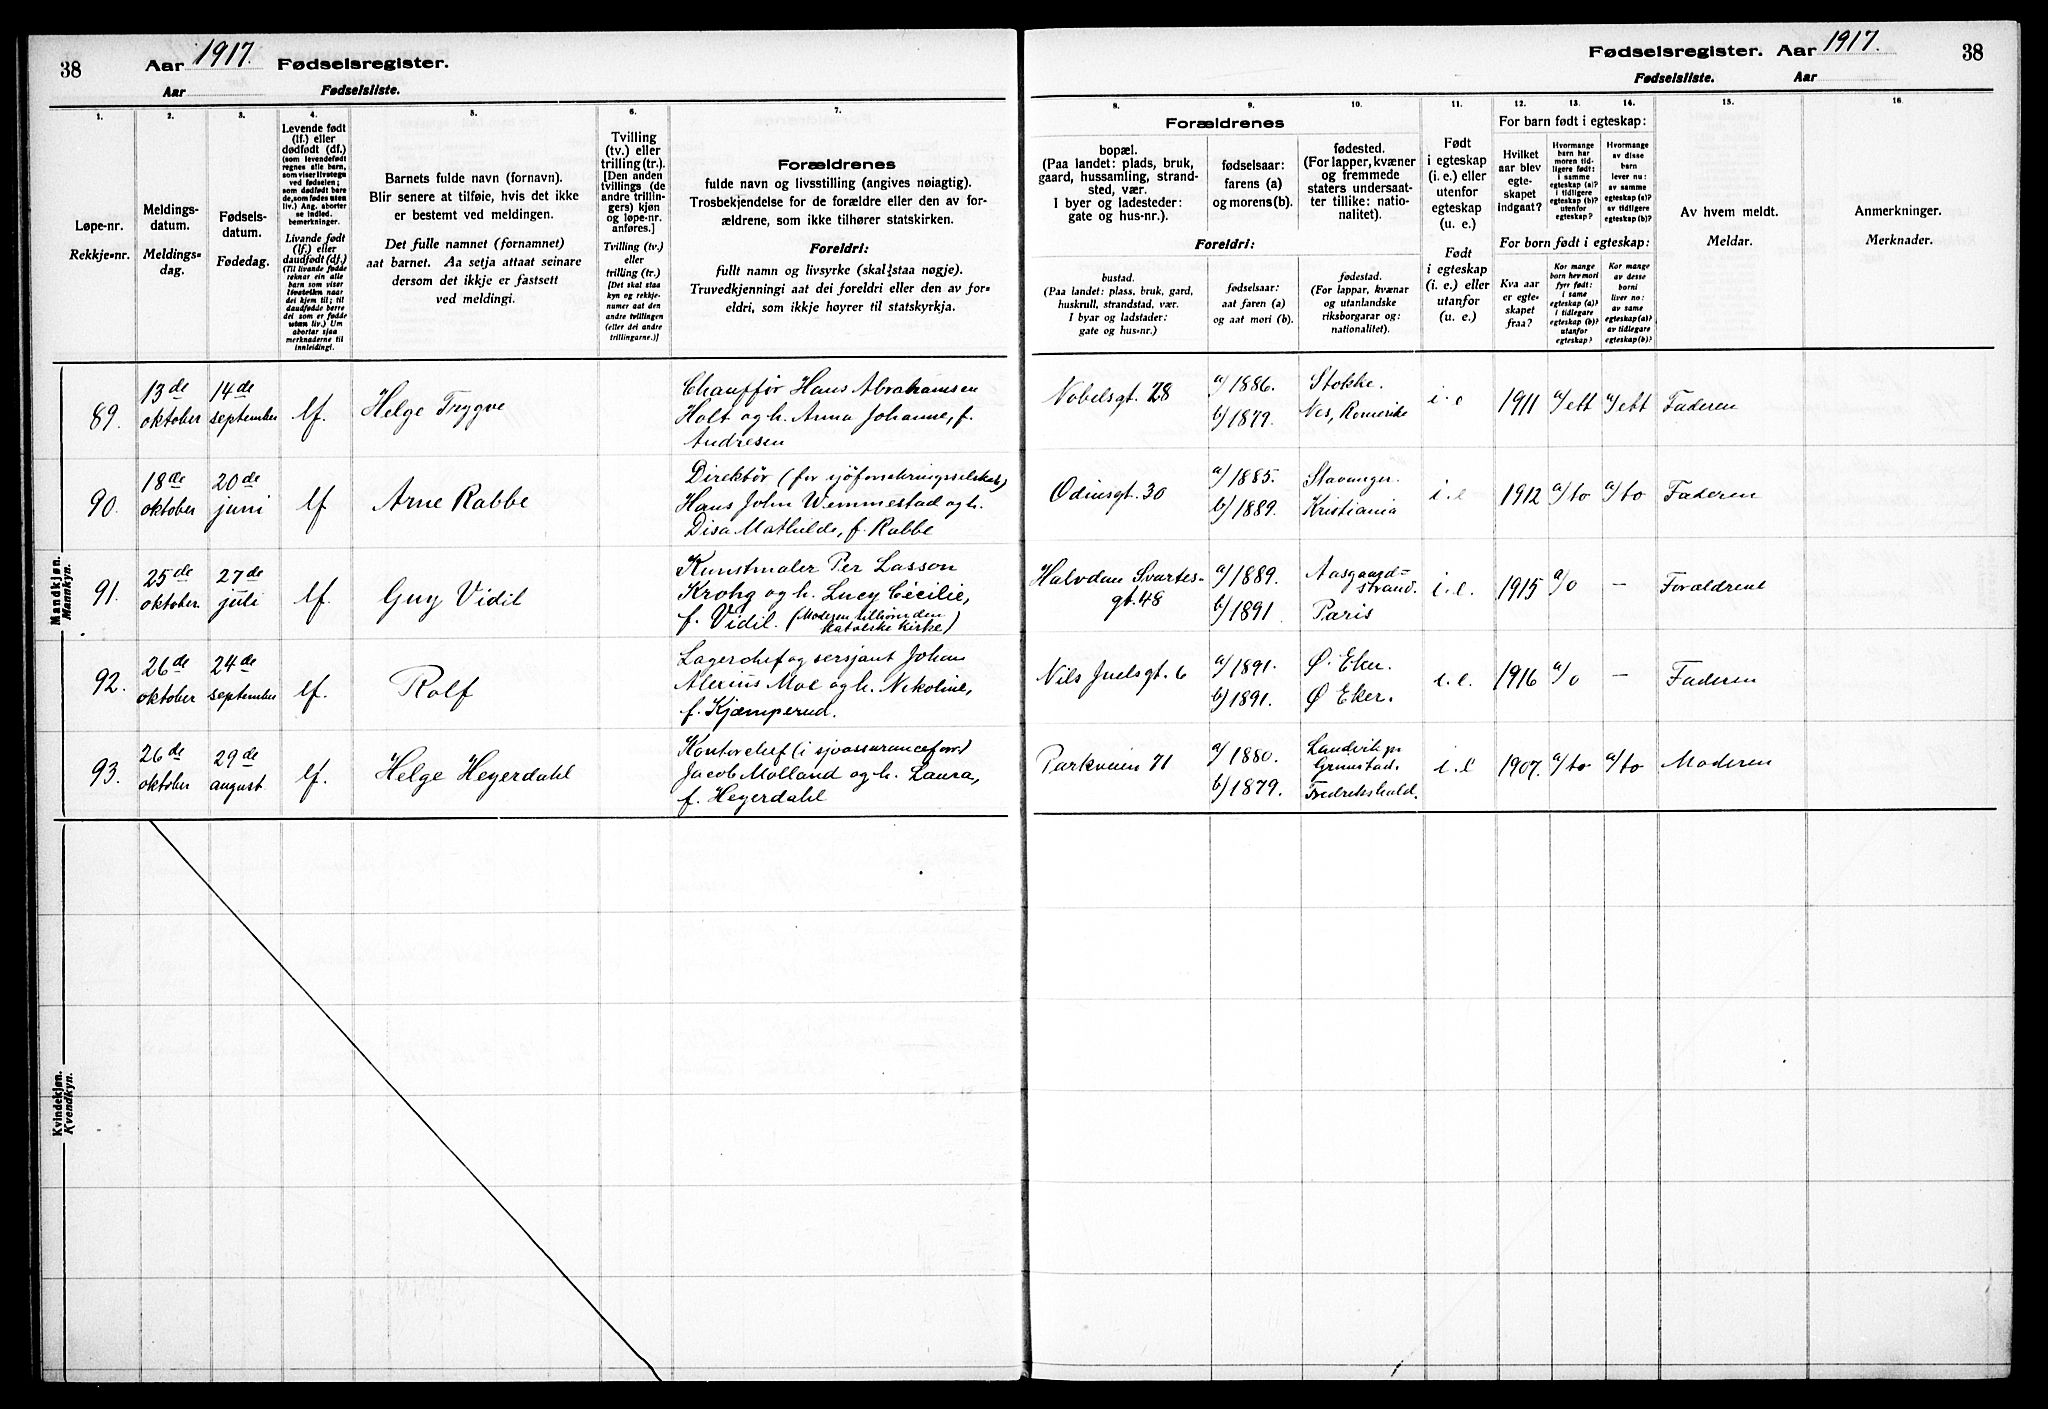 38
Aar 1917. Fødselsregister.
Aar Fødselsliste.
Fødselsregister. Aar 1917.
38
Fødselsliste. Aar
1.
Løpe-nr.
Rekkje=nr.
2.
Meldings-
datum.
Meldings=
dag.
3.
Fødsels-
datum.
Fødedag.
4.
Levende født
(lf.) eller
dødfødt (df.)
(som levendefødt
regnes alle barn,
som viser livstegn
ved fødselen;
som dødfødt bare
de, som fødes uten
liv.) Ang. aborter
se indled.
bemerkninger.
Livande født
(lf.) eller
daudfødt (df.)
(Til livande fødde
reknar ein alle
barn som viser
livsteikn naar
dei kjem til; til
daudfødde berre
dei som er fødde
utan liv.) Um
abortar sjaa
merknaderne til
innleiding).
5.
Barnets fulde navn (fornavn).
Blir senere at tilføie, hvis det ikke
er bestemt ved meldingen.
Det fulle namnet (fornamnet)
aat barnet. Aa setja attaat seinare
dersom det ikkje er fastsett
ved meldingi.
6.
Tvilling
(tv.) eller
trilling (tr.).
[Den anden
tvillings (de
andre trillin-
gers) kjøn
og løpe-nr.
anføres.]
Tvilling (tv.)
eller
trilling (tr.)
[Det skal staa
kyn og rekkje-
numer aat den
andre tvillingen
(eller dei andre
trillingarne.)]
7.
Forældrenes
fulde navn og livsstilling (angives nøiagtig).
Trosbekjendelse for de forældre eller den av for-
ældrene, som ikke tilhører statskirken.
Foreldri:
fullt namn og livsyrke (skal staa nøgje).
Truvedkjenningi aat dei foreldri eller den av for=
eldri, som ikkje høyrer til statskyrkja.
8.
Forældrenes
bopæl.
(Paa landet: plads, bruk,
gaard, hussamling, strand-
sted, vær.
I byer og ladesteder:
gate og hus-nr.).
Foreldri:
bustad.
(Paa landet: plass, bruk, gard,
huskrull, strandstad, vær.
I byar og ladstader:
gate og hus=nr.)
9.
fødselsaar:
farens (a)
og morens (b).
fødselsaar:
aat faren (a)
og aat mori (b).
10.
fødested.
(For lapper, kvæner
og fremmede
staters undersaat-
ter tillike: natio-
nalitet).
fødestad.
(For lappar, kvænar
og utanlandske
riksborgarar og:
nationalitet).
11.
Født
i egteskap
(i. e.) eller
utenfor
egteskap
(u. e.)
Født
i egteskap
(i. e.) eller
utanfor
(u. e.)
For barn født i egteskap:
12.
Hvilket
aar blev
egte-
skapet
indgaat?
13.
Hvormange
barn har
moren tid-
ligere født:
i samme
egteskap (a)?
i tidligere
egteskap (b)?
utenfor
egteskap?
14.
Hvormange
av disse
barn
lever nu:
av samme
egteskap (a)?
av tidligere
egteskap (b)?
For born født i egteskap:
Kva aar
er egte-
skapet
fraa?
Kor mange
born hev mori
fyrr født:
i same
egteskap (a)?
i tidlegare
egteskap (b)?
utanfor
egteskap?
Kor mange
av desse
borni
liver no:
av same
egteskap (a)?
av tidlegare
egteskap (b)?
15.
Av hvem meldt.
Meldar.
16.
Anmerkninger.
Merknader.
Mandkjøn.
Mannkyn.
89.
13de
oktober
14de
september
lf.
Helge Trygve
Chauffør Hans Abrahamsen
Holt og h. Anna Johanne, f.
Andresen
Nobelsgt. 28
a/1886.
b/1879.
Stokke.
Nes, Romerike
i.e
1911
a/ ett
a/ ett
Faderen
90.
18de
oktober
20de
juni
lf
Arne Rabbe
Direktør (for sjøforsikringsselskab)
Hans John Wemmestad og h.
Disa Mathilde, f. Rabbe
Odinsgt. 30
a/1885.
b/1889.
Stavanger.
Kristiania
i.e
1912
a/ to
a/ to
Faderen
91.
25de
oktober
27de
juli
lf.
Guy Vidil
Kunstmaler Per Lasson
Krohg og h. Lucy Cécilie,
f. Vidil. (Moderen tilhør den
katolske kirke)
Halvdan Svartes-
gt. 48
a/1889.
b/1891
Aasgaard=
strand.
Paris
i.e.
1915
a/o
–
Forældrene
92.
26de
oktober
24de
september
lf.
Rolf
Lagerchef og sersjant Johan
Alexius Moe og h. Nikoline,
f. Kjæmperud.
Nils Juelsgt. 6
a/1891.
b/1891.
Ø. Eker.
Ø Eker.
i.e.
1916
a/o
–
Faderen
93.
26de
oktober
29de
august
lf.
Helge Heyerdahl
Kontorchef (i sjøassuranceforr)
Jacob Molland og h. Laura,
f. Heyerdahl
Parkveien 71
a/1880.
b/1879.
Landvik pr
Grimstad.
Fredrikshald.
i.e
1907.
a/to
a/to
Moderen
Kvindekjøn.
Kvendkyn.